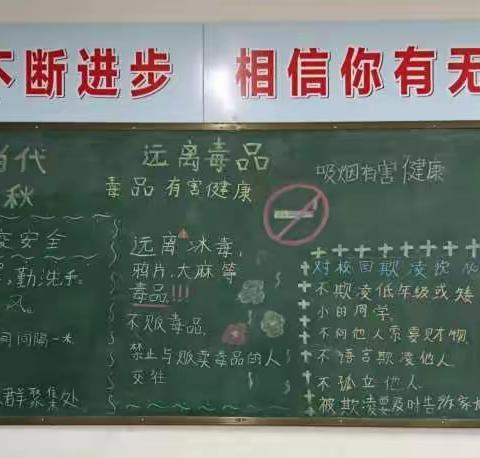 不断进步 相信你有无
当代
秋
安全
,勤洗手。
风。
间隔一米
群聚集处
远离毒品
毒品有害健康
远离冰毒,
鸦片、大麻等
毒品!!!
不贩毒品,
禁止与贩卖毒品的人
交往
吸烟有害健康
对校园欺凌说
不欺凌低年级或矮
小的同学。
不向他人索要财物
不语言欺凌他人
不孤立他人
被欺凌要及时告诉家长